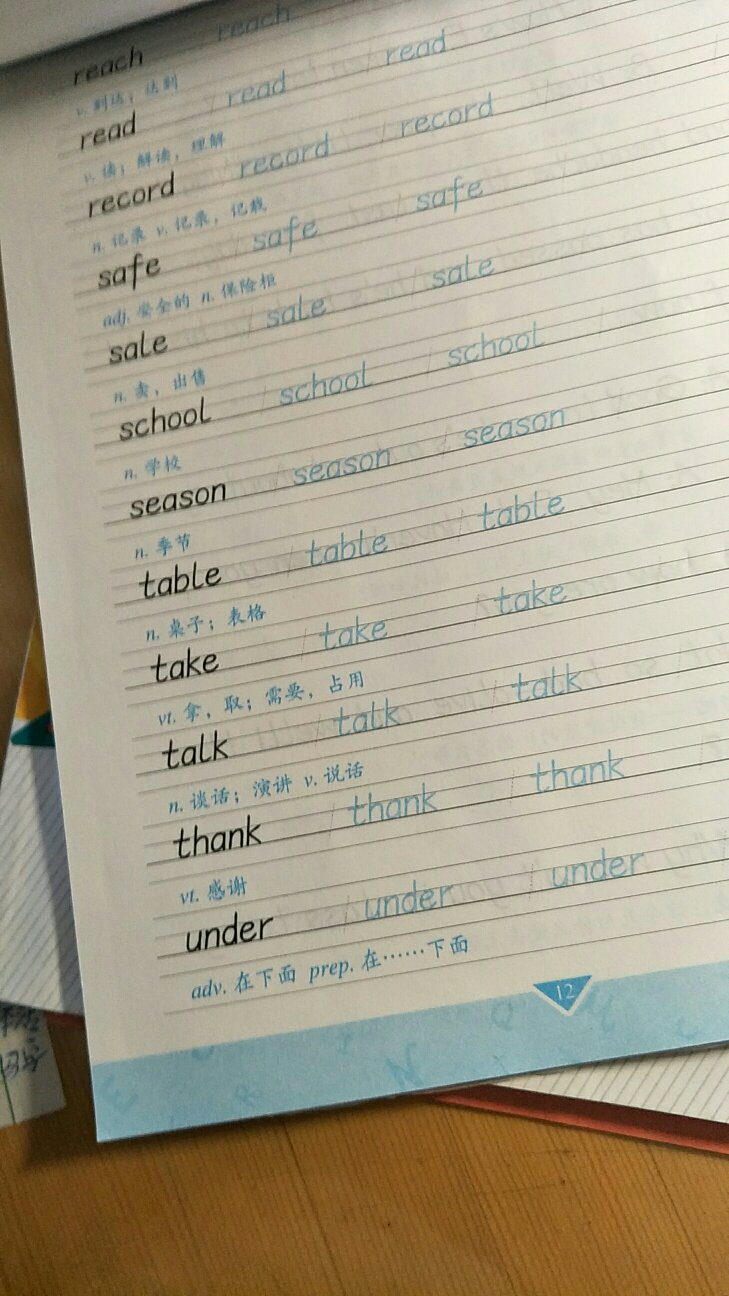 reach reach
v. 到达；达到
read read read
v. 读；解读，理解
record record record
n. 记录 v. 记录，记载
safe safe safe
adj. 安全的 n. 保险柜
sale sale sale
n. 卖，出售
school school school
n. 学校
season season season
n. 季节
table table table
n. 桌子；表格
take take take
vt. 拿，取；需要，占用
talk talk talk
n. 谈话；演讲 v. 说话
thank thank thank
vt. 感谢
under under under
adv. 在下面 prep. 在……下面
12